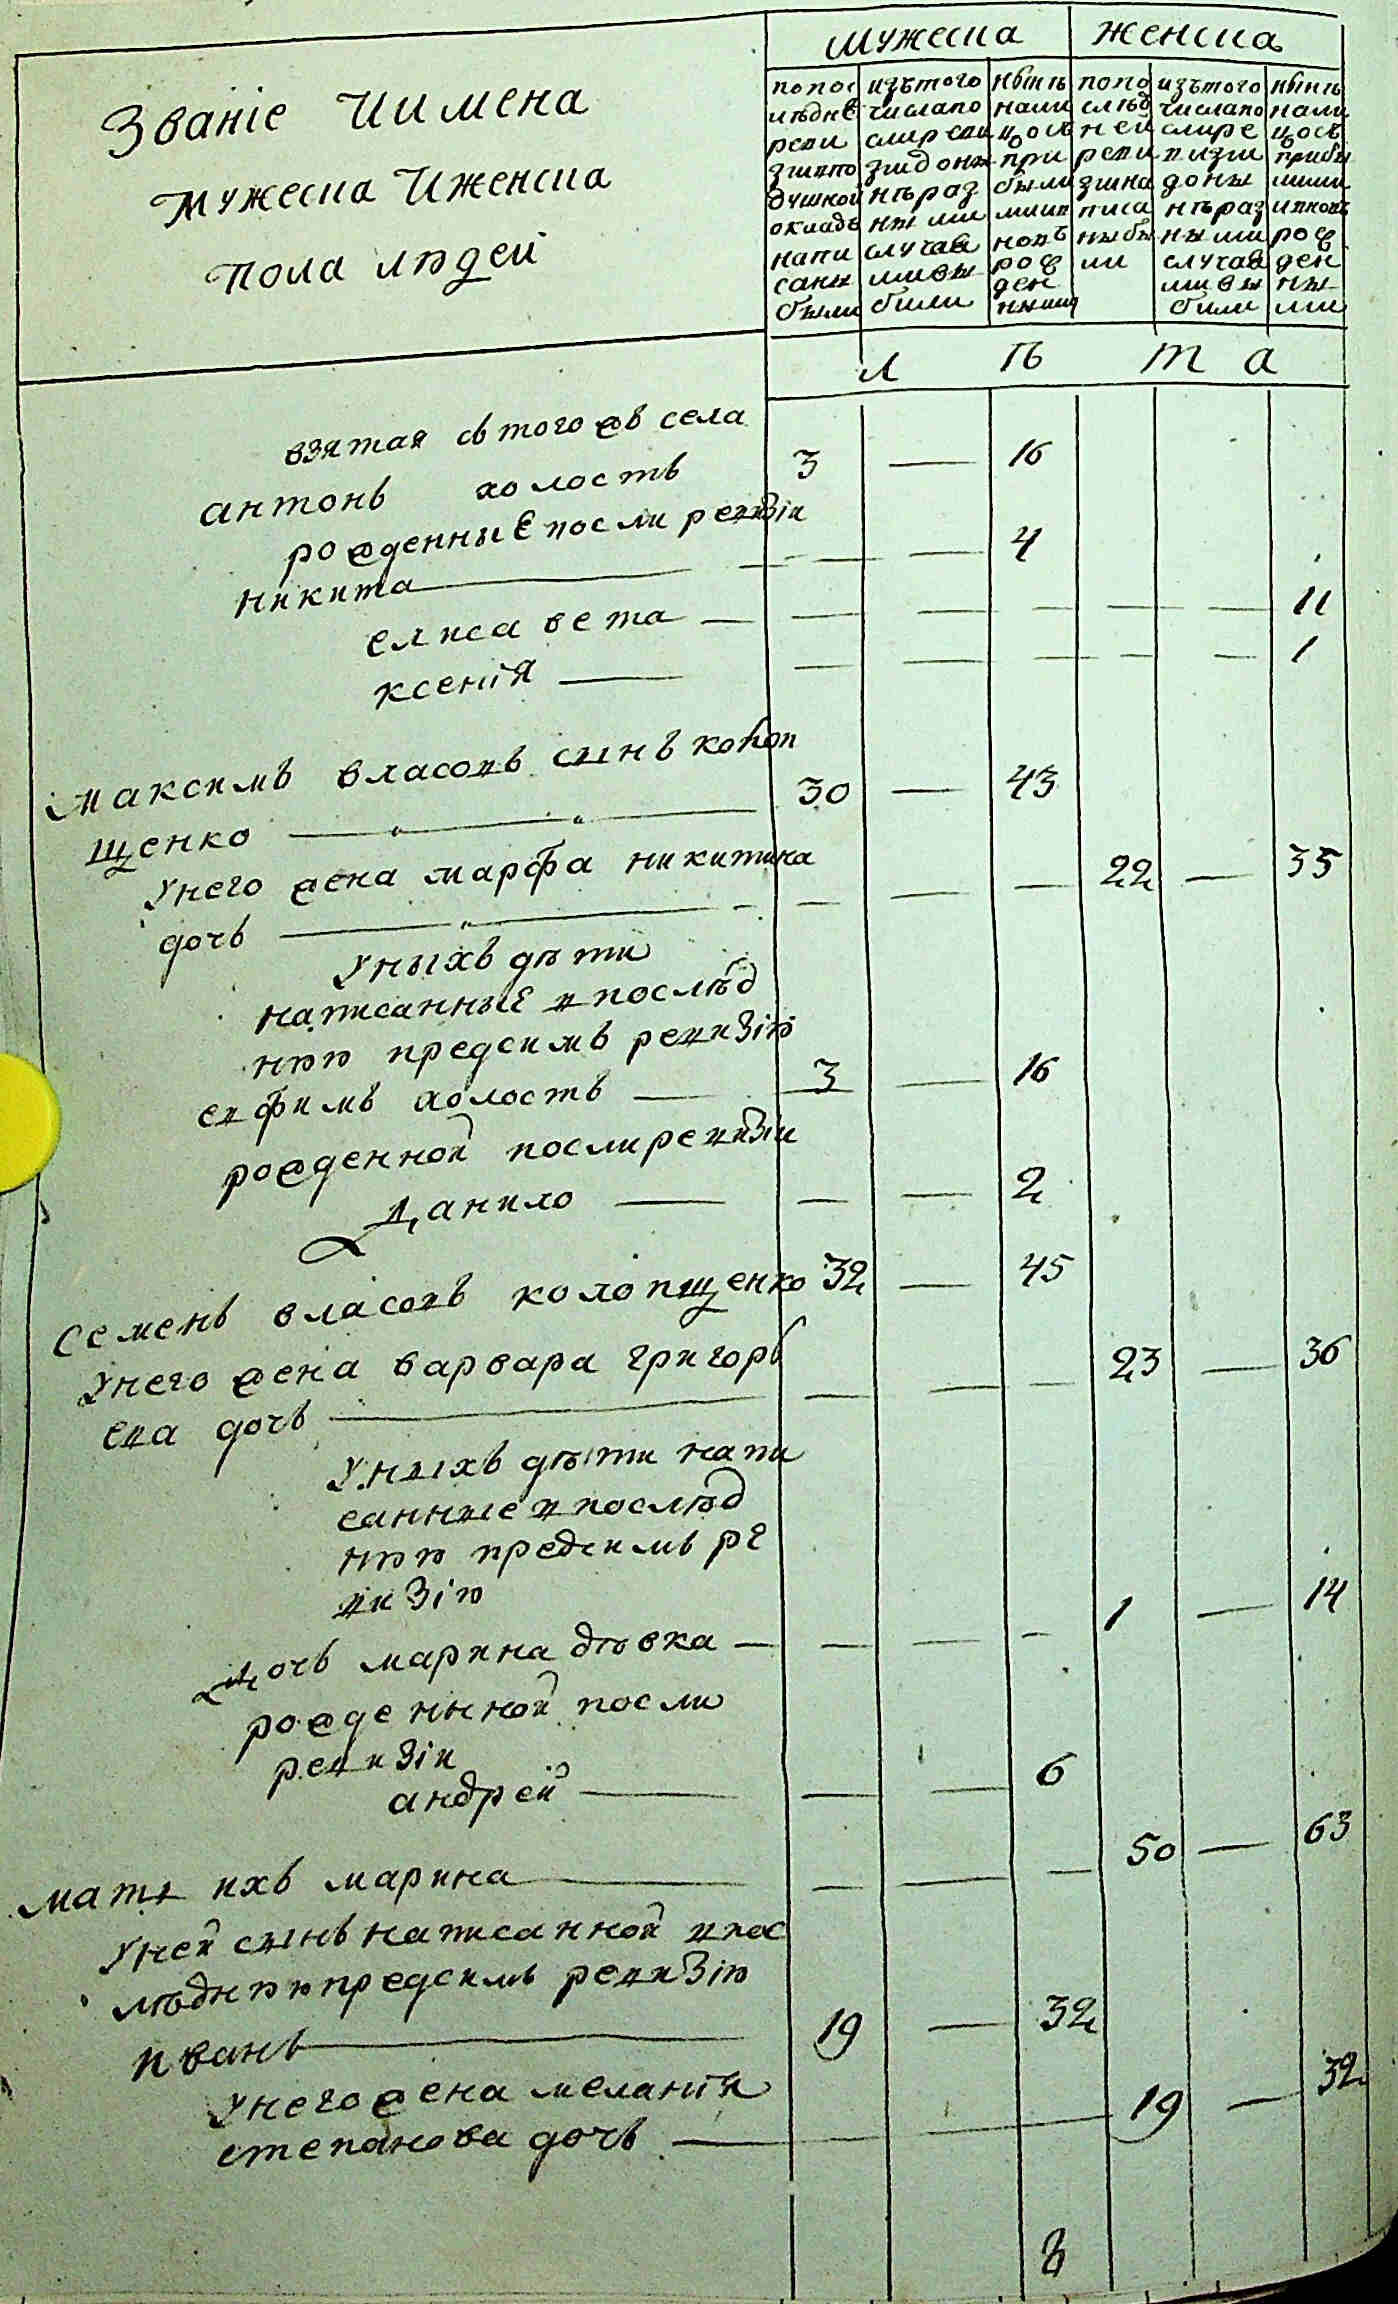 мужеска женска
Званіе Иимена
мужеска Иженска
пола людей
попос
лѣдне
реви
зиипо
душкой
окладъ
напи
саны
были
изътого
числапо
слиреви
зиідоны
нѣраз
ны ми
случаи
ми вы
были
нынѣ
нали
цость
при
были
мии
новъ
рож
ден
ными
попо
слѣд
ней
реви
зіина
писа
ны бы
ли
изътого
числапо
слире
визіи
доны
нѣраз
ны ми
случаи
ми вы
были
нынѣ
нали
цось
прибы
лими
иновъ
рож
ден
ны
ми
л ѣ т а
взятая съ того жъ села
антонъ холостъ 3 — 16
рожденные посли ревизіи
никита — 4
елисавета — 11
ксенія — 1
максимъ власовъ сынъ колоп
щенко 30 — 43
Унего жена марфа никитина
дочь 22 — 35
Уныхъ дѣти
написанные впослѣд
нюю предсимъ ревизію
ефимъ холостъ — 3 — 16
рожденной послиревизіи
Данило — 2
Семенъ власовъ колопщенко 32 — 45
Унего жена варвара григорь
ева дочь 23 — 36
Уныхъ дѣти напи
санные впослѣд
нюю предсимъ ре
визію
Дочь марина дѣвка — 1 — 14
рожденнной посли
ревизіи
андрей — 6
мать ихъ марина 50 — 63
Уней сынъ написанной впос
лѣднюю предсимъ ревизію
иванъ 19 — 32
Унего жена меланія
степанова дочь — 19 — 32